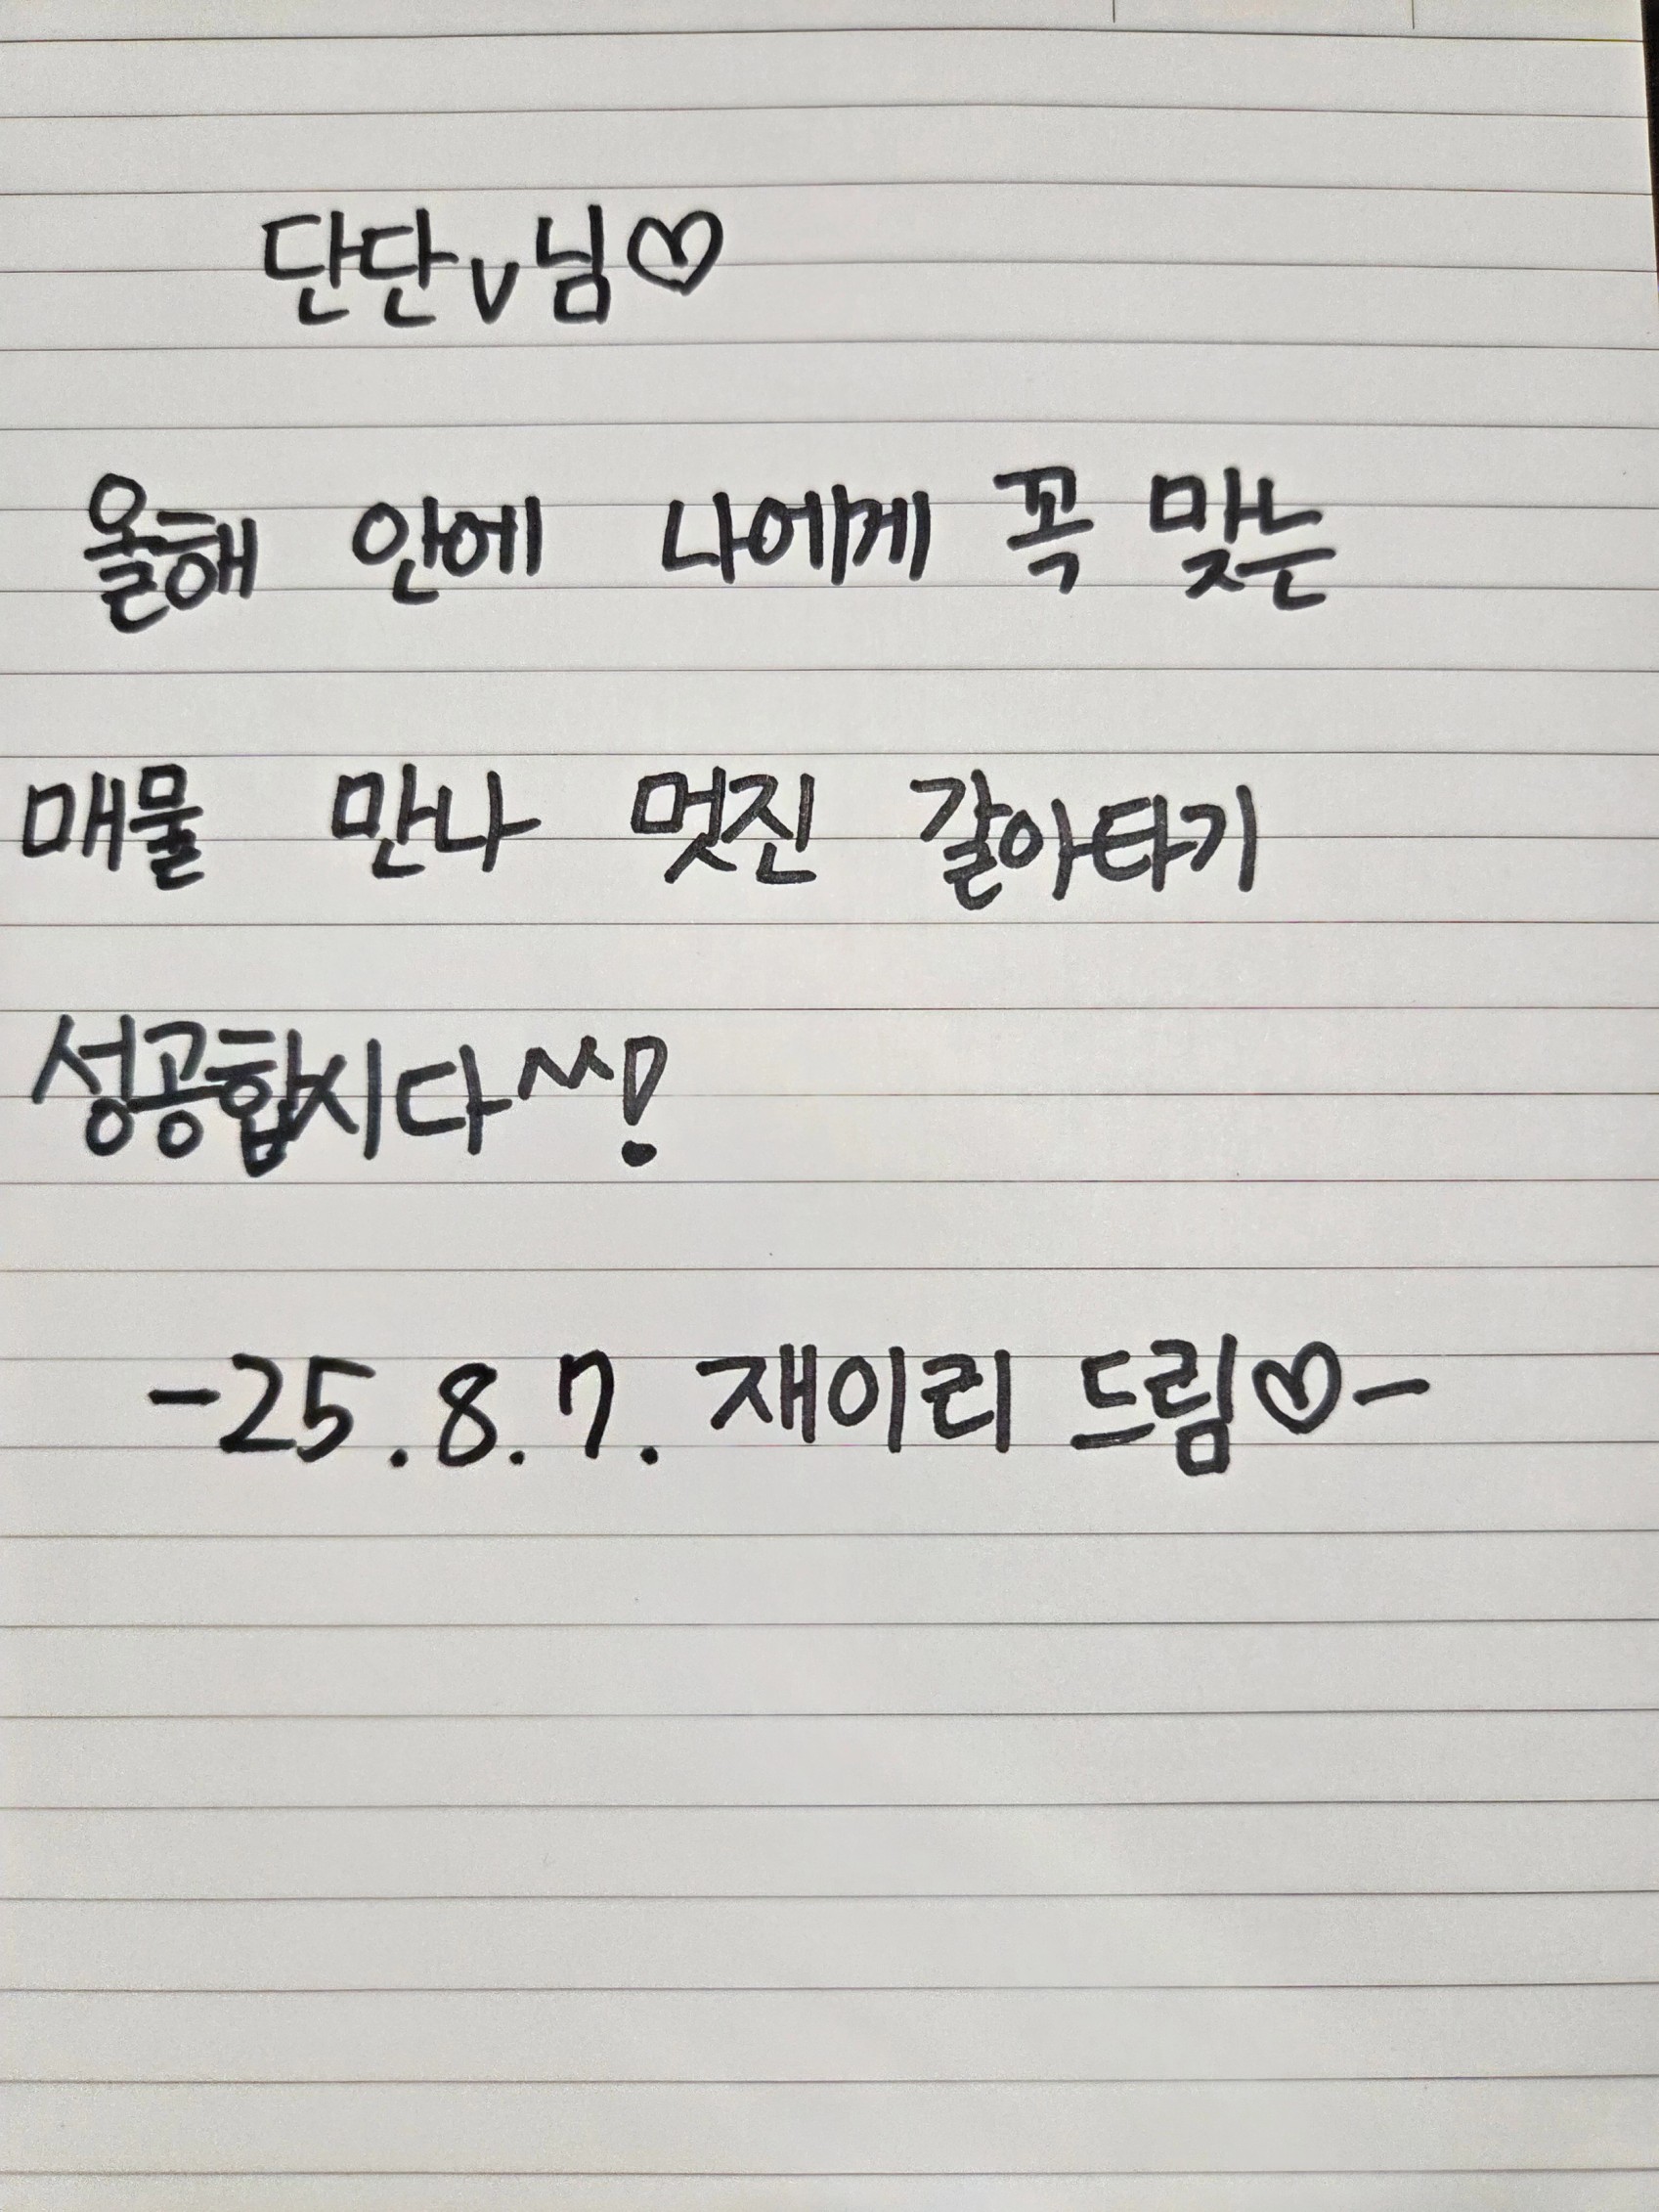 단단v님♡
올해 안에 나에게 꼭 맞는
매물 만나 멋진 갈아타기
성공합시다^^!
-25.8.7. 재이리 드림♡-